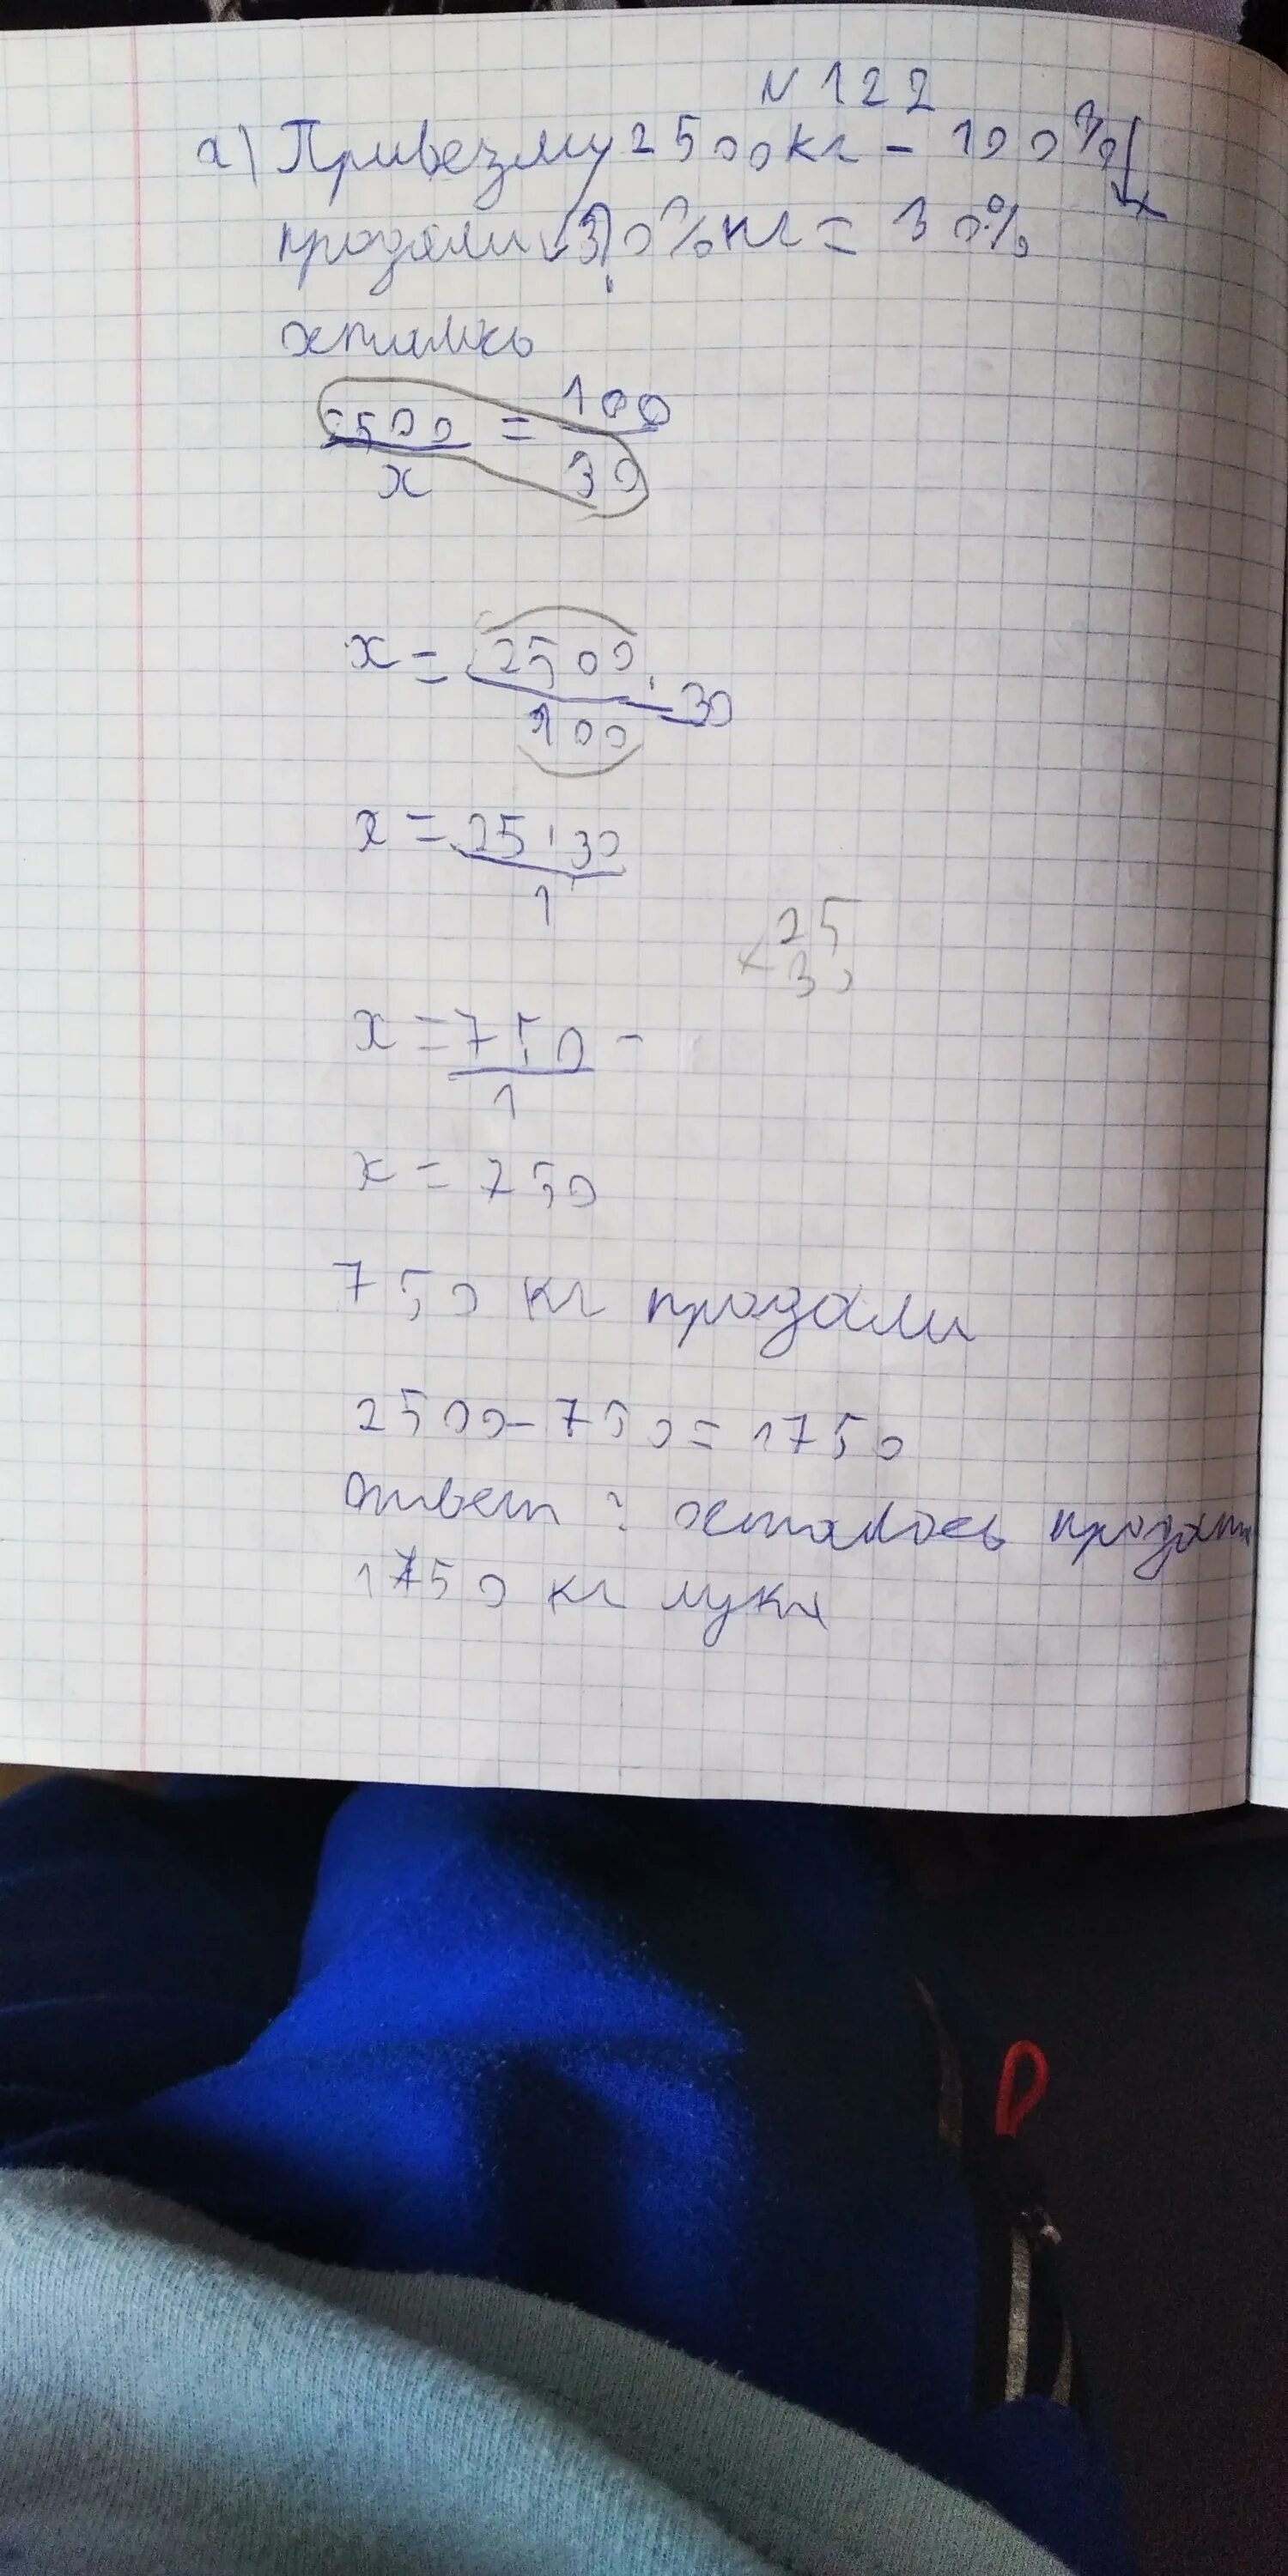 N 122
а) Привезли 2500 кг - 100%
продали (3)0% кг = 30%
2500 = 100
x 30
x = 2500 · 30
100
x = 25 · 30
1
25
× 30
x = 750
1
x = 750
750 кг продали
2500 - 750 = 1750
Ответ : осталось продать
1750 кг лука